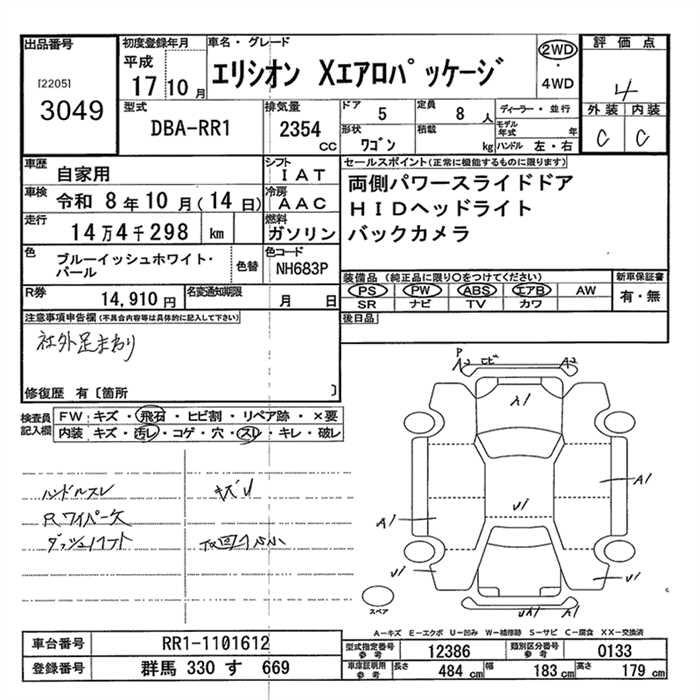 出品番号
[2205]
3049
初度登録年月
平成
17 10月
車名・グレード
エリシオン Xエアロパッケージ
2WD
・
4WD
評価点
4
外装 内装
C C
型式
DBA-RR1
排気量
2354
CC
ドア 5
定員 8人
形状 ワゴン
積載 kg
ディーラー・並行
モデル年式 年
ハンドル 左・右
車歴 自家用
シフト IAT
車検 令和 8年10月(14日)
冷房 AAC
走行 14万4千298 km
燃料 ガソリン
色 ブルーイッシュホワイト・パール
色替
色コード NH683P
R券 14,910円
名変通知期限 月 日
セールスポイント(正常に機能するものに限ります)
両側パワースライドドア
HIDヘッドライト
バックカメラ
装備品(純正品に限り○をつけてください)
PS PW ABS エアB AW
SR ナビ TV カワ
新車保証書
有・無
後日品
注意事項申告欄(不具合内容等は具体的に記入して下さい)
社外足まわり
修復歴 有〔箇所 〕
検査員記入欄
FW キズ・飛石・ヒビ割・リペア跡・×要
内装 キズ・汚レ・コゲ・穴・スレ・キレ・破レ
ハンドルスレ
Rワイパー欠
キズU
P
A2 ヒビ A2
A1
A1
U1
A1
U1
U1
UA1
スペア
A-キズ E-エクボ U-凹み W-補修跡 S-サビ C-腐食 XX-交換済
車台番号 RR1-1101612
登録番号 群馬 330 す 669
型式指定番号 参考 12386
類別区分番号 参考 0133
車庫証明用 参考 長さ 484 cm 幅 183 cm 高さ 179 cm